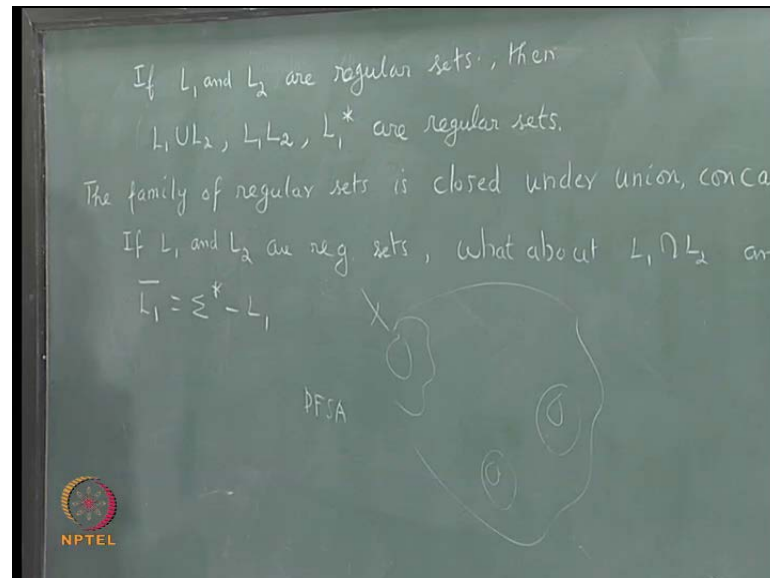 If L₁ and L₂ are regular sets, then
L₁ ∪ L₂, L₁L₂, L₁* are regular sets.
The family of regular sets is closed under union, conca
If L₁ and L₂ are reg. sets, what about L₁ ∩ L₂ an
L̅₁ = Σ* - L₁
DFSA
NPTEL